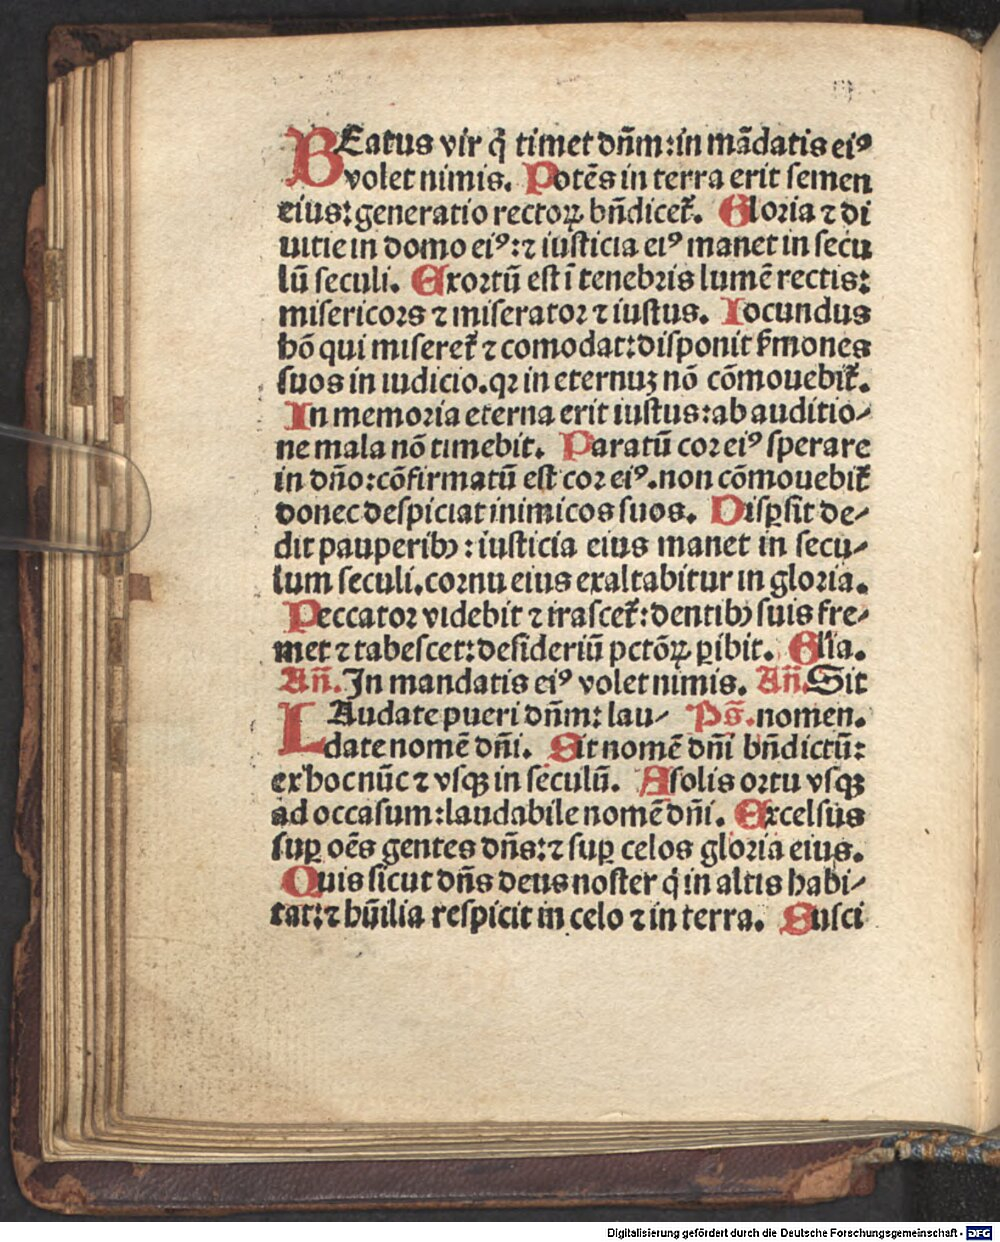 BEatus vir q̄ timet dn̄m:in mādatis eiꝰ
volet nimis. Potēs in terra erit semen
eius:generatio rectoꝝ bn̄dicet᷑. Gloria ⁊ di
uitie in domo eiꝰ:⁊ iusticia eiꝰ manet in secu
lū seculi. Exortū est ī tenebris lumē rectis:
misericors ⁊ miserator ⁊ iustus. Iocundus
hō qui miseret᷑ ⁊ comodat:disponit s̄mones
suos in iudicio.qꝛ in eternuꝫ nō cōmouebit᷑.
In memoria eterna erit iustus:ab auditio⸗
ne mala nō timebit. Paratū cor eiꝰ sperare
in dn̄o:cōfirmatū est cor eiꝰ.non cōmouebit᷑
donec despiciat inimicos suos. Disꝑsit de⸗
dit pauperibꝫ:iusticia eius manet in secu⸗
lum seculi.cornu eius exaltabitur in gloria.
Peccator videbit ⁊ irascet᷑:dentibꝫ suis fre⸗
met ⁊ tabescet:desideriū pctōꝝ ꝑibit. Gl̄ia.
An̄. In mandatis eiꝰ volet nimis. An̄. Sit
LAudate pueri dn̄m:lau⸗ Ps̄. nomen.
date nomē dn̄i. Sit nomē dn̄i bn̄dictū:
ex hoc nūc ⁊ vsqꝫ in seculū. A solis ortu vsqꝫ
ad occasum:laudabile nomē dn̄i. Excelsus
suꝑ oēs gentes dn̄s:⁊ suꝑ celos gloria eius.
Quis sicut dn̄s deus noster q̄ in altis habi⸗
tat:⁊ hūilia respicit in celo ⁊ in terra. Susci
Digitalisierung gefördert durch die Deutsche Forschungsgemeinschaft - DFG